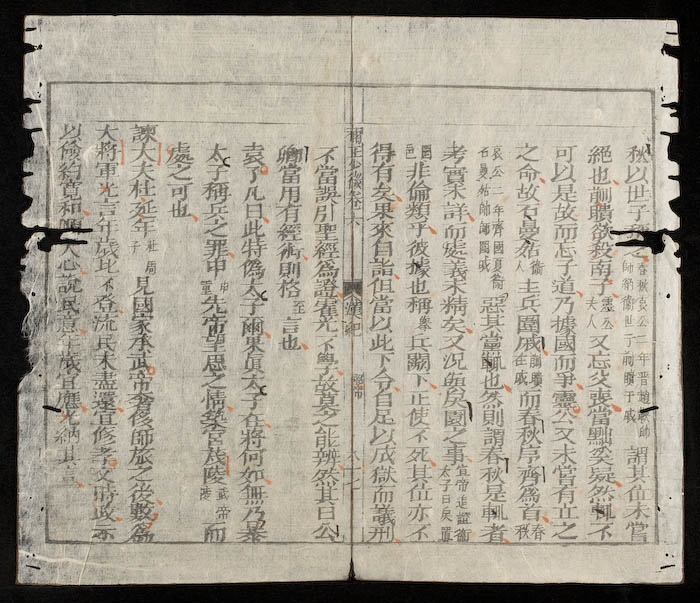 秋以世子稱之春秋哀公二年晉趙鞅帥師納衛世子蒯聵于戚謂其位未嘗
絕也蒯聵欲殺南子靈公夫人又忘父喪當黜矣疑然輒不
可以是故而忘子道乃據國而爭靈公又未嘗有立之
之命故石曼姑衛人主兵圍戚蒯聵在戚而春秋序齊爲首春秋
哀公三年齊國夏衛石曼姑帥師圍戚惡其黨輒也然則謂春秋是輒者
考實未詳而處義未精矣又況與戾園之事宣帝追諡衛太子曰戾置
園邑非倫類乎彼據也稱兵闕下正使不死其位亦不
得有矣果來自詣但當以此下令自足以成獄而議刑
補正少微卷六
漢紀
昭帝
不當誤引聖經爲證霍光不學故莫之能辨然其曰公
卿當用有經術則格至言也
袁了凡曰此特僞太子爾果眞太子在將何如無乃暴
太子稱兵之罪申先帝望思之情築宮茂陵武帝陵而
處之可也
諫大夫杜延年杜周子見國家承武帝奢侈師旅之後數爲
大將軍光言年歲比不登流民未盡還宜修孝文時政示
以儉約寬和順天心說民意年歲宜應光納其言